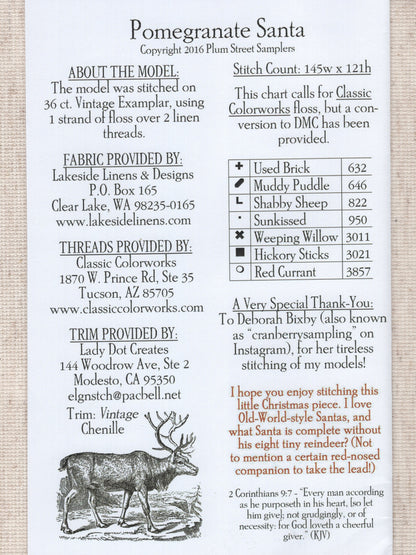 Pomegranate Santa
Copyright 2016 Plum Street Samplers
ABOUT THE MODEL:
The model was stitched on
36 ct. Vintage Examplar, using
1 strand of floss over 2 linen
threads.
FABRIC PROVIDED BY:
Lakeside Linens & Designs
P.O. Box 165
Clear Lake, WA 98235-0165
www.lakesidelinens.com
THREADS PROVIDED BY:
Classic Colorworks
1870 W. Prince Rd, Ste 35
Tucson, AZ 85705
www.classiccolorworks.com
TRIM PROVIDED BY:
Lady Dot Creates
144 Woodrow Ave, Ste 2
Modesto, CA 95350
elgnstch@pacbell.net
Trim: Vintage
Chenille
Stitch Count: 145w x 121h
This chart calls for Classic
Colorworks floss, but a con-
version to DMC has been
provided.
Used Brick 632
Muddy Puddle 646
Shabby Sheep 822
Sunkissed 950
Weeping Willow 3011
Hickory Sticks 3021
Red Currant 3857
A Very Special Thank-You:
To Deborah Bixby (also known
as "cranberrysampling" on
Instagram), for her tireless
stitching of my models!
I hope you enjoy stitching this
little Christmas piece. I love
Old-World-style Santas, and
what Santa is complete without
his eight tiny reindeer? (Not
to mention a certain red-nosed
companion to take the lead!)
2 Corinthians 9:7 - "Every man according
as he purposeth in his heart, [so let
him give]; not grudgingly, or of
necessity: for God loveth a cheerful
giver." (KJV)